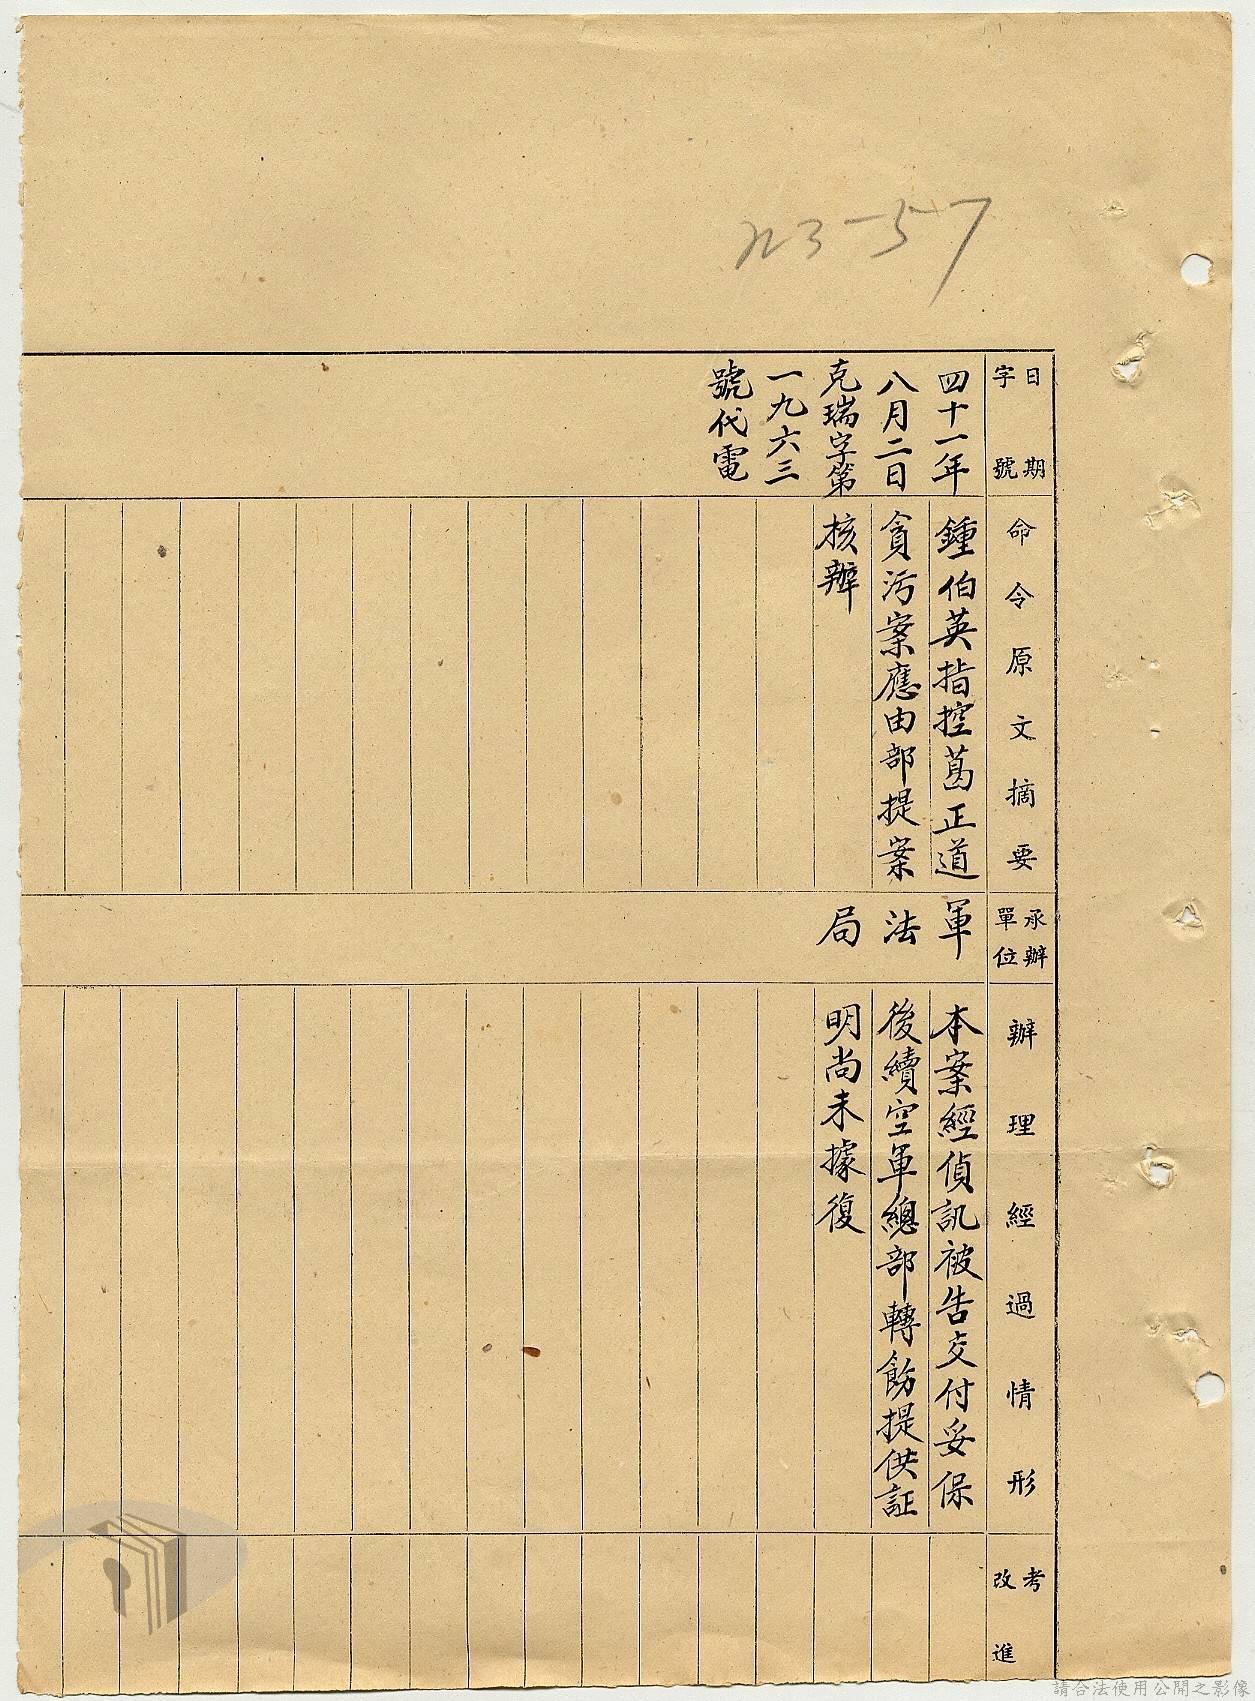 日期
字號
四十一年
八月二日
克瑞字第
一九六三
號代電
命令原文摘要
鍾伯英指控葛正道
貪污案應由部提案
核辦
承辦
單位
軍法局
辦理經過情形
本案經偵訊被告交付妥保
後續空軍總部轉飭提供証
明尚未據復
考
改進
請合法使用公開之影像